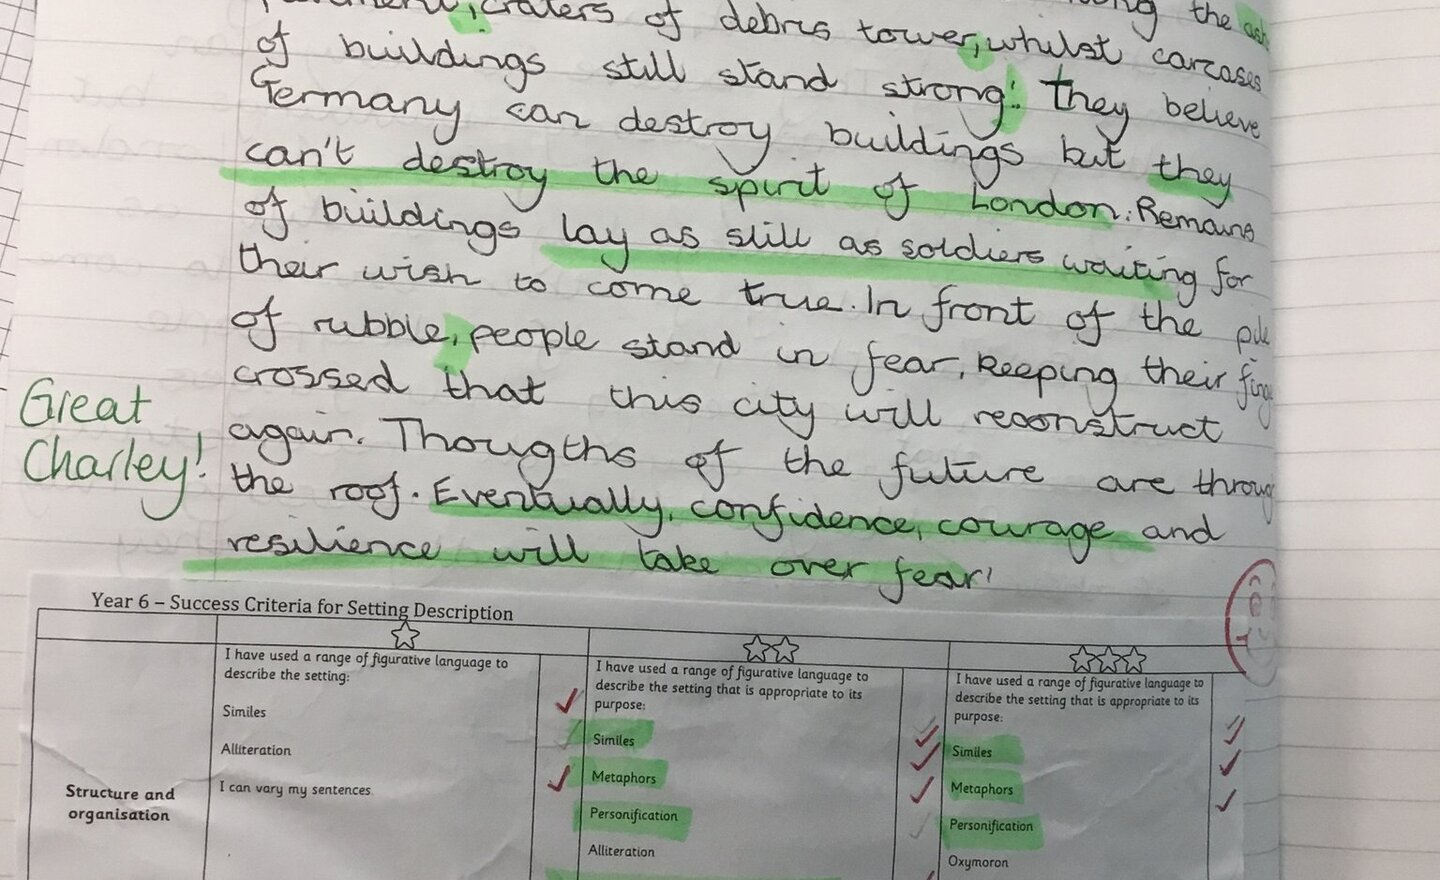 craters of debris tower, whilst carcases
of buildings still stand strong! They believe
Germany can destroy buildings but they
can't destroy the spirit of London. Remains
of buildings lay as still as soldiers waiting for
their wish to come true. In front of the pile
of rubble, people stand in fear, keeping their
crossed that this city will reconstruct
again. Thougths of the future are
the roof. Eventually, confidence, courage and
resilience will take over fear!
Great
Charley!
Year 6 – Success Criteria for Setting Description
Structure and
organisation
I have used a range of figurative language to
describe the setting:
Similes
Alliteration
I can vary my sentences
I have used a range of figurative language to
describe the setting that is appropriate to its
purpose:
Similes
Metaphors
Personification
Alliteration
I have used a range of figurative language to
describe the setting that is appropriate to its
purpose:
Similes
Metaphors
Personification
Oxymoron